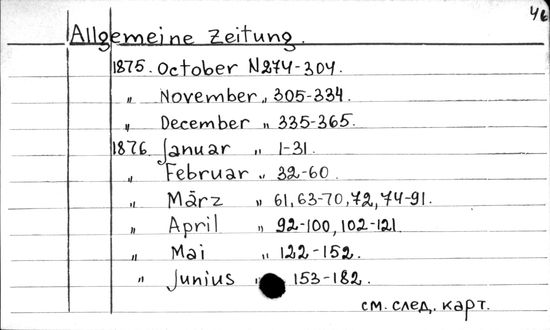 46
Allgemeine Zeitung.
1875. October N274-304.
„ November „ 305-334.
„ December „ 335-365.
1876. Januar „ 1-31.
„ Februar „ 32-60.
„ März „ 61,63-70,72,74-91.
„ April „ 92-100,102-121
„ Mai „ 122-152.
„ Junius „ 153-182.
см. след. карт.